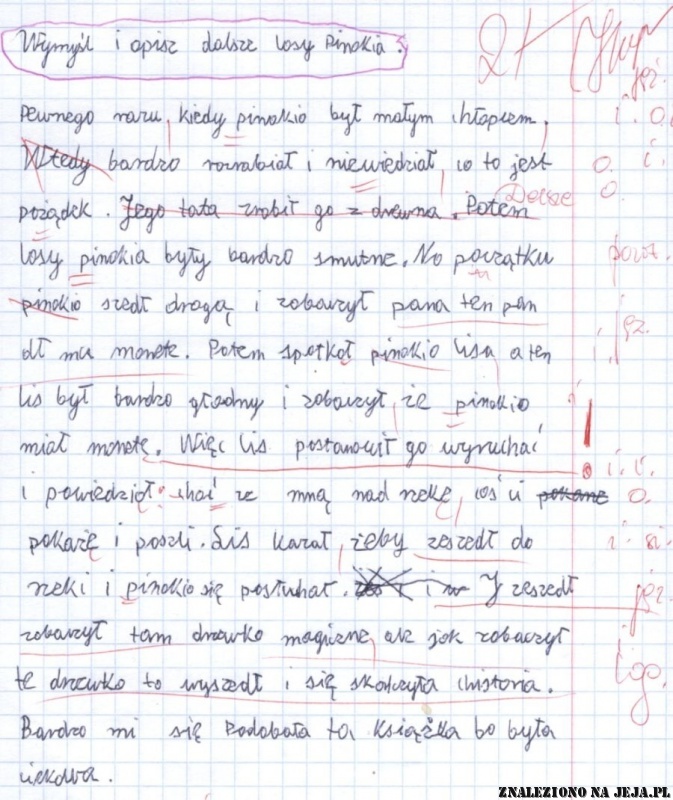 Wymyśl i opisz dalsze losy Pinokia.
2+
Pewnego razu kiedy pinokio był małym chłopcem.
Wtedy bardzo rozrabiał i niewiedział, co to jest
Dalsze
pożądek. Jego tata zrobił go z drewna. Potem
losy pinokia były bardzo smutne. No początku
pinokio szedł drogą i zobaczył pana ten pan
dł mu monete. Potem spotkoł pinokio lisa a ten
lis był bardzo głodny i zobaczył, że pinokio
miał monetę. Więc lis postanowił go wyruchać
i powiedział chać ze mną nad rzekę, coś ci pokarze
pokażę i poszli. Lis kazał, żeby zeszedł do
rzeki i pinokio się posłuchał. i w I zeszedł
zobaczył tam drzewko magiczne, ale jok zobaczył
te drzewko to wyszedł i się skończyła chistoria.
Bardzo mi się Podobała ta Książka bo była
ciekawa.
ZNALEZIONO NA JEJA.PL